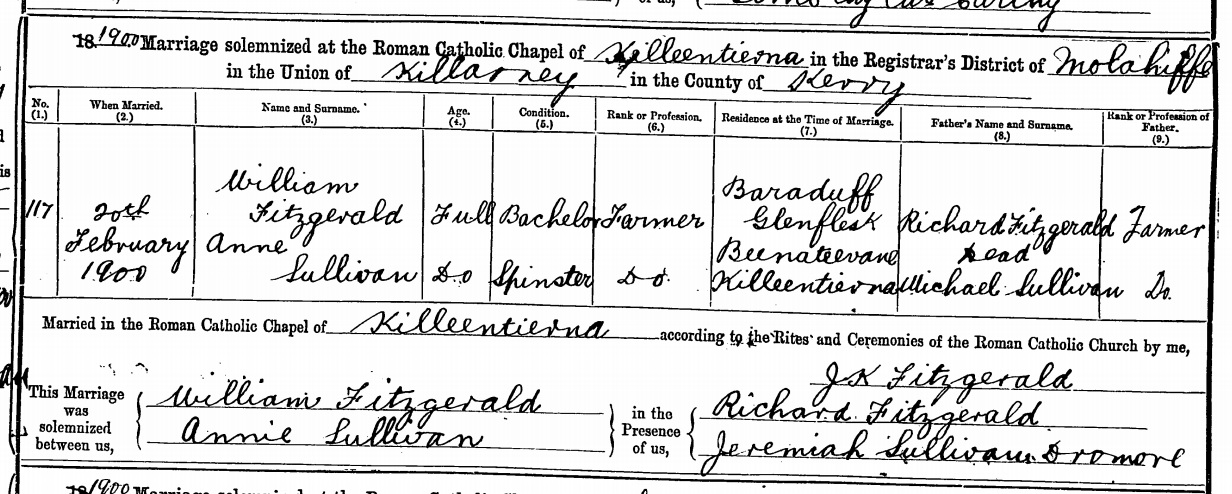 18 1900 Marriage solemnized at the Roman Catholic Chapel of Killeentierna in the Registrar's District of Molahiffe
in the Union of Killarney in the County of Kerry
No. (1.) When Married. (2.) Name and Surname. (3.) Age. (4.) Condition. (5.) Rank or Profession. (6.) Residence at the Time of Marriage. (7.) Father's Name and Surname. (8.) Rank or Profession of Father. (9.)
William Baraduff
117 20th Fitzgerald Full Bachelor Farmer Glenflesk Richard Fitzgerald Farmer
February Anne Beenateevane Dead
1900 Sullivan Do Spinster Do. Killeentierna Michael Sullivan Do.
Married in the Roman Catholic Chapel of Killeentierna according to the Rites and Ceremonies of the Roman Catholic Church by me,
JK Fitzgerald
This Marriage was solemnized between us, William Fitzgerald in the Presence of us, Richard Fitzgerald
Annie Sullivan Jeremiah Sullivan Dromore
18 1900 Marriage solemnized at the Roman Catholic